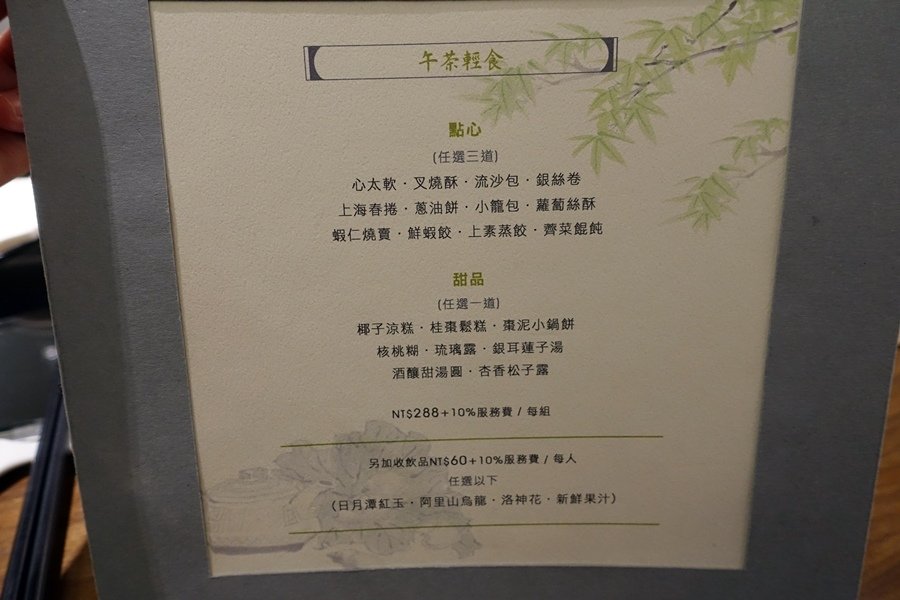 午茶輕食
點心
(任選三道)
心太軟·叉燒酥·流沙包·銀絲卷
上海春捲·蔥油餅·小籠包·蘿蔔絲酥
蝦仁燒賣·鮮蝦餃·上素蒸餃·薺菜餛飩
甜品
(任選一道)
椰子涼糕·桂棗鬆糕·棗泥小鍋餅
核桃糊·琉璃露·銀耳蓮子湯
酒釀甜湯圓·杏香松子露
NT$288+10%服務費 / 每組
另加收飲品NT$60+10%服務費 / 每人
任選以下
(日月潭紅玉·阿里山烏龍·洛神花·新鮮果汁)